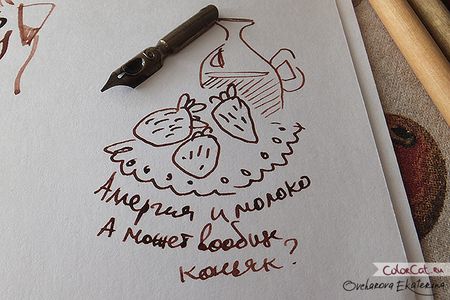 Аллергия и молоко
А может вообще
коньяк?
ColorCat.ru
Ovcharova Ekaterina